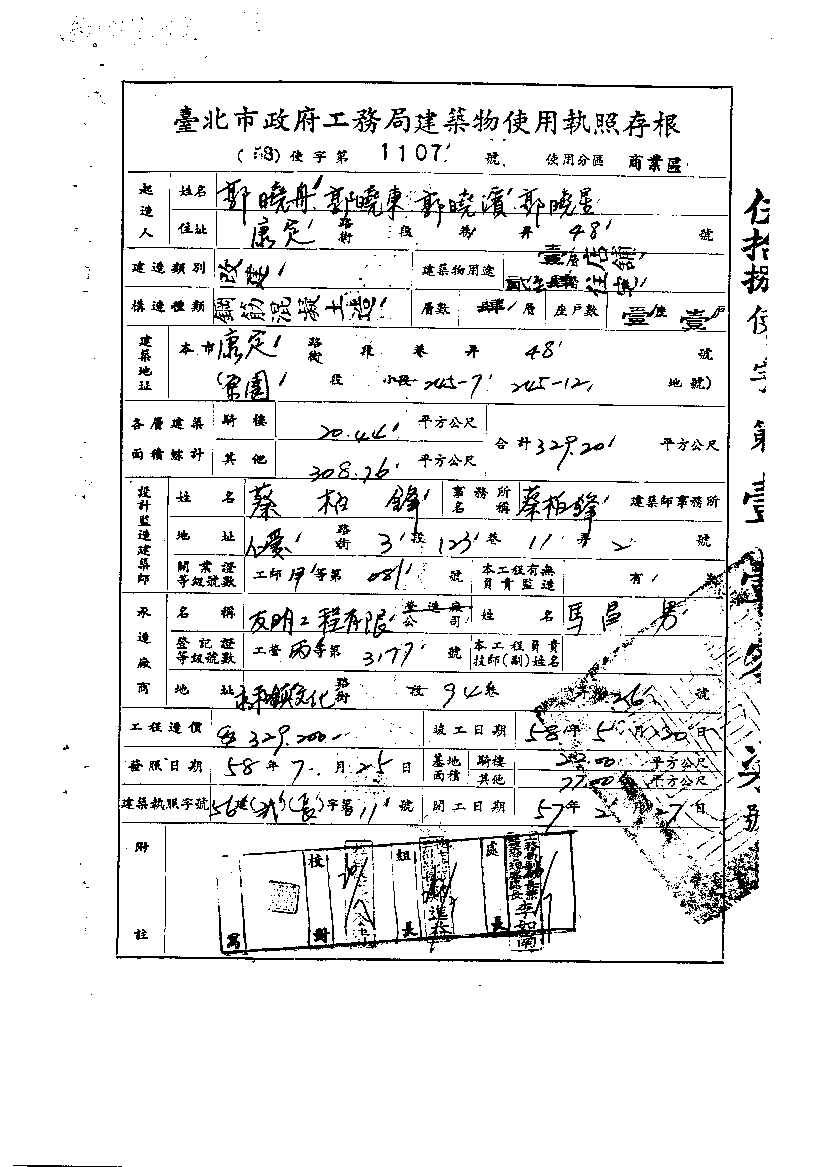 臺北市政府工務局建築物使用執照存根
(58)使字第 1107 號 使用分區 商業區
起造人 姓名 郭曉舟 郭曉東 郭曉濱 郭曉星
住址 康定 路街 段 巷 弄 48 號
建造類別 改建 建築物用途 壹層店舖 住宅
構造種類 鋼筋混凝土造 層數 肆 層 座戶數 壹座 壹戶
建築地址 本市 康定 路街 段 巷 弄 48 號
段 小段 245-7 245-12 地號)
各層建築面積綜計 騎樓 20.44 平方公尺 合計 329.20 平方公尺
其他 308.76 平方公尺
設計監造建築師 姓名 蔡柏鋒 事務所名稱 蔡柏鋒 建築師事務所
地址 仁愛 路街 3 段 123 巷 11 弄 2 號
開業證等級號數 工師 甲 等第 081 號 本工程有無負責監造 有
承造廠商 名稱 友明工程有限 營造廠公司 姓名 馬昌男
登記證等級號數 工營 丙 等第 3177 號 本工程負責技師(副)姓名
地址 永和鎮文化 路街 段 94 巷 號
工程造價 329.200 竣工日期 58 年 5 月 30 日
發照日期 58 年 7 月 25 日 基地面積 騎樓 平方公尺
其他 77.00 平方公尺
建築執照字號 56建( )(長)字第 11 號 開工日期 57 年 2 月 7 日
附註
寫 校對 組長 處長
李如南
伍拾捌使字第壹壹零柒號